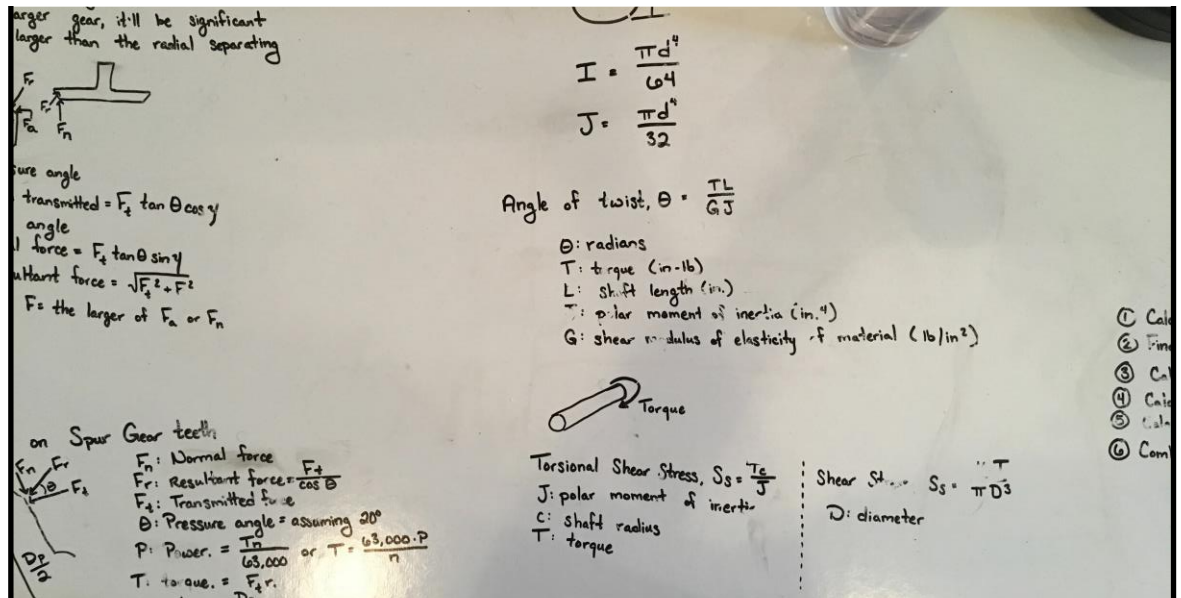 larger gear, it'll be significant
larger than the radial separating
Fr
Fr
Fa
Fn
angle
transmitted = Ft tan θ cos y
angle
force = Ft tan θ sin y
force = √Ft² + F²
F = the larger of Fa or Fn
on Spur Gear teeth
Fn Fr
θ Ft
Dp/2
Fn: Normal force
Fr: Resultant force = Ft/cos θ
Ft: Transmitted force
θ: Pressure angle = assuming 20°
P: Power. = Tn/63,000 or T = 63,000·P/n
T: torque. = Ft r.
I = πd⁴/64
J = πd⁴/32
Angle of twist, θ = TL/GJ
θ: radians
T: torque (in-lb)
L: shaft length (in.)
: polar moment of inertia (in.⁴)
G: shear modulus of elasticity of material (lb/in²)
Torque
Torsional Shear Stress, Ss = Tc/J
J: polar moment of inertia
c: shaft radius
T: torque
Shear Ss = T/πD³
D: diameter
①
②
③
④
⑤
⑥